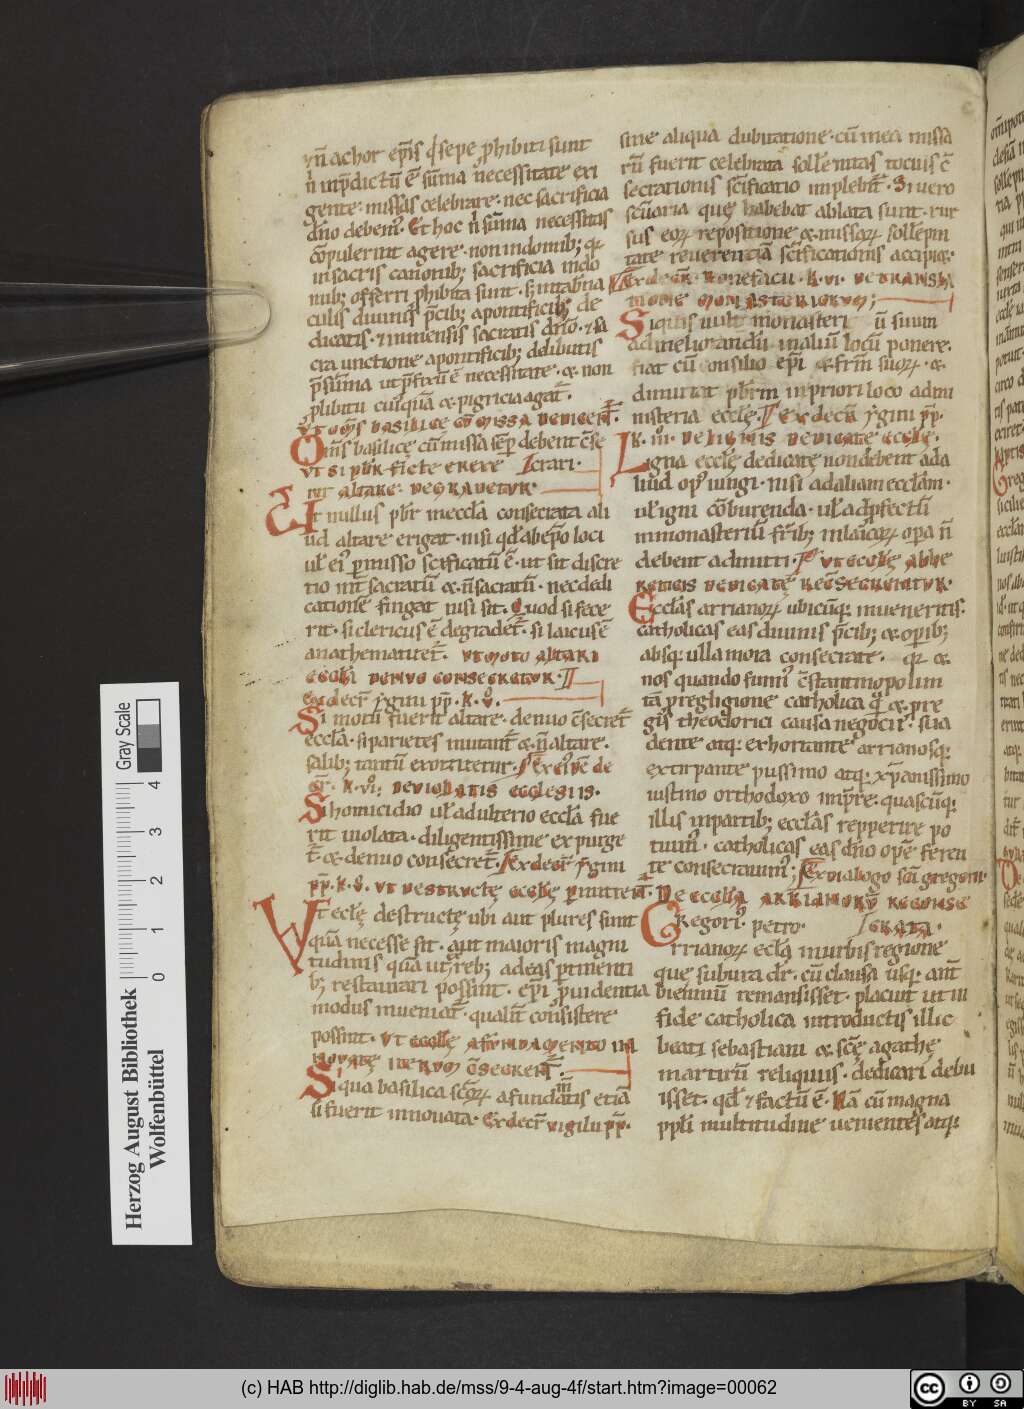 ni in p̄dictū ē sūma necessitate exi
gente missas celebrare· nec sacrificia
dn̄o debent᷒· Et hoc n̄ sūma necessitas
cōpulerint agere· non in domib;
in sacris canonib; sacrificia in do
mib; offerri ꝓhibita sunt·
culis diuinis p̄cib; a pontificib; de
dicatis·
cra unctione a pontificib; delibutis
necessitate· & non
ꝓlibitu cuiꝙā & pigricia agat᷒·
Vt om̄s basilice cū missa dedicent᷒·
Om̄s basilicę cū missa sēp debent cs̄e
Vt si pbr̄ ficte erexe
crati·
rit altare· degradetur·
Vt nullus pbr̄ in eccl̄a consecrata ali
ud altare erigat· nisi qd̄ ab ep̄o loci
ul̄ ei᷒ ꝑmisso scīficatū ē· ut sit discre
tio int̄ sacratū & n̄ sacratū· nec dedi
catione fingat nisi sit· Quod si fece
rit· si clericus ē degradet᷒· si laicus ē
anathematitet᷒· Vt moto altari
eccl̄a denuo consecretur·
ex decr̄ ygini pp̄· k· v·
Si motū fuerit altare· denuo cs̄ecret᷒
eccl̄a· si parietes mutant᷒ & n̄ altare·
salib; tantū exorcitetur·
k· vi; De violatis ecclesiis·
Si homicidio ul̄ adulterio eccl̄a fue
rit uiolata· diligentissime expurge
t᷒ & denuo consecret᷒· Ex decr̄ ygini
pp̄· k· v· Vt destructę eccl̄ę
Vt eccl̄ę destructę ubi aut plures sunt
quā necesse sit· aut maioris magni
tudinis quā ut reb; ad eas ꝑtinenti
b; restaurari possint· ep̄i ꝓuidentia
modus inueniat᷒· qualit᷒ consistere
possint· Vt eccl̄ę a fundamento in
nouatę iterum cs̄ecrent᷒·
Si qua basilica scōꝝ a fundam̄tis etiā
si fuerit innouata· Ex decr̄ vigilii pp̄·
sine aliqua dubitatione· cū in ea missa
rū fuerit celebrata soll̄emnitas tocius c̄
secrationis scīficatio implebit᷒· Si uero
scūaria quę habebat ablata sunt· rur
sus eoꝝ repositione & missaꝝ soll̄emp
nitate reuerentiā scīficationis accipiet·
Ex decr̄· Bonefacii· k· vi· De transm
monasteriorum;
Si quis uult monasteri ū suum
ad meliorandū in aliū locū ponere·
fiat cū consilio ep̄i & fr̄m suoꝝ· &
dimittat pbr̄m in priori loco ad mi
nisteria eccl̄ę· Ex decr̄ ygini pp̄·
k· iii· De lignis dedicatę eccl̄ę·
Ligna eccl̄ę dedicatę non debent ad a
liud op᷒ iungi· nisi ad aliam eccl̄am·
ul̄ igni cōburenda· ul̄ ad ꝓfectū
in monasteriū fr̄ib; in laicoꝝ opa n̄
debent admitti·
Eccl̄as arrianoꝝ ubicūq; inueneritis·
catholicas eas diuinis p̄cib; & opib;
absq; ulla mora consecrate· &
nos quando fuim᷒ cs̄tantinopolim
tā ꝓ regligione catholica & ꝓ re
gis theodorici causa negocii· sua
dente atq; exhortante arrianosq;
extirpante piissimo atq; xp̄ianissimo
iustino orthodoxo imp̄re· quascūq;
illis in partib; eccl̄as repperire po
tuim᷒· catholicas eas dn̄o ope feren
te consecrauim᷒; Ex dialogo scī gregorii·
De eccl̄ia arrianorū reconse
crata·
Gregori᷒ petro·
Arrianoꝝ eccl̄a in urbis regione
quę subura dr̄· cū clausa usq; ant̄
bienniū remansisset· placuit ut in
fide catholica introductis illic
beati sebastiani & scę agathę
martirū reliquiis· dedicari debu
isset· qd̄ factū ē· Nā cū magna
ppl̄i multitudine uenientes atq;
Herzog August Bibliothek
Wolfenbüttel
Gray Scale
0 1 2 3 4
(c) HAB http://diglib.hab.de/mss/9-4-aug-4f/start.htm?image=00062
cc BY SA